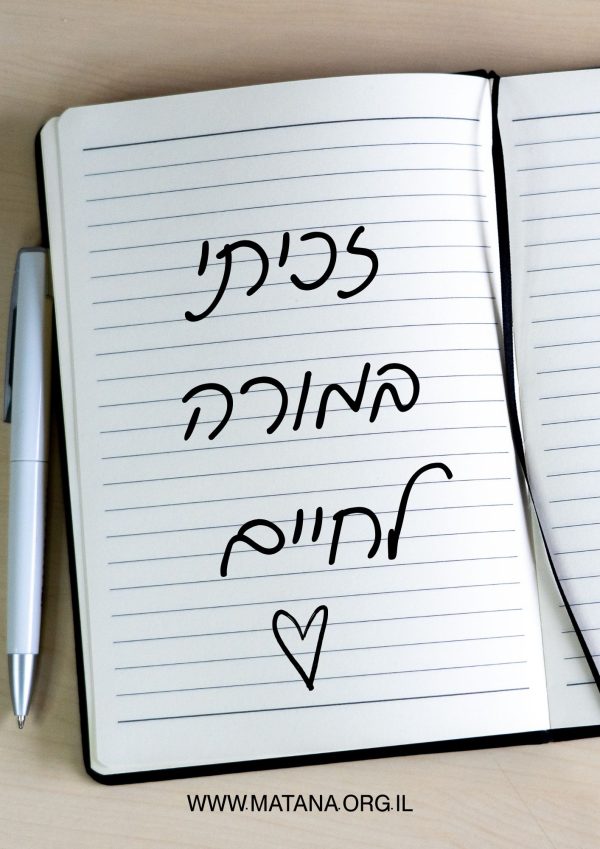 זכיתי
במורה
לחיים
WWW.MATANA.ORG.IL